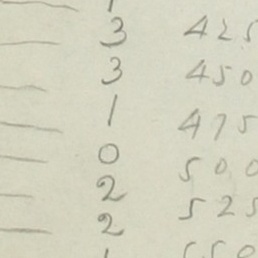 3 425
3 450
1 475
0 500
2 525
2